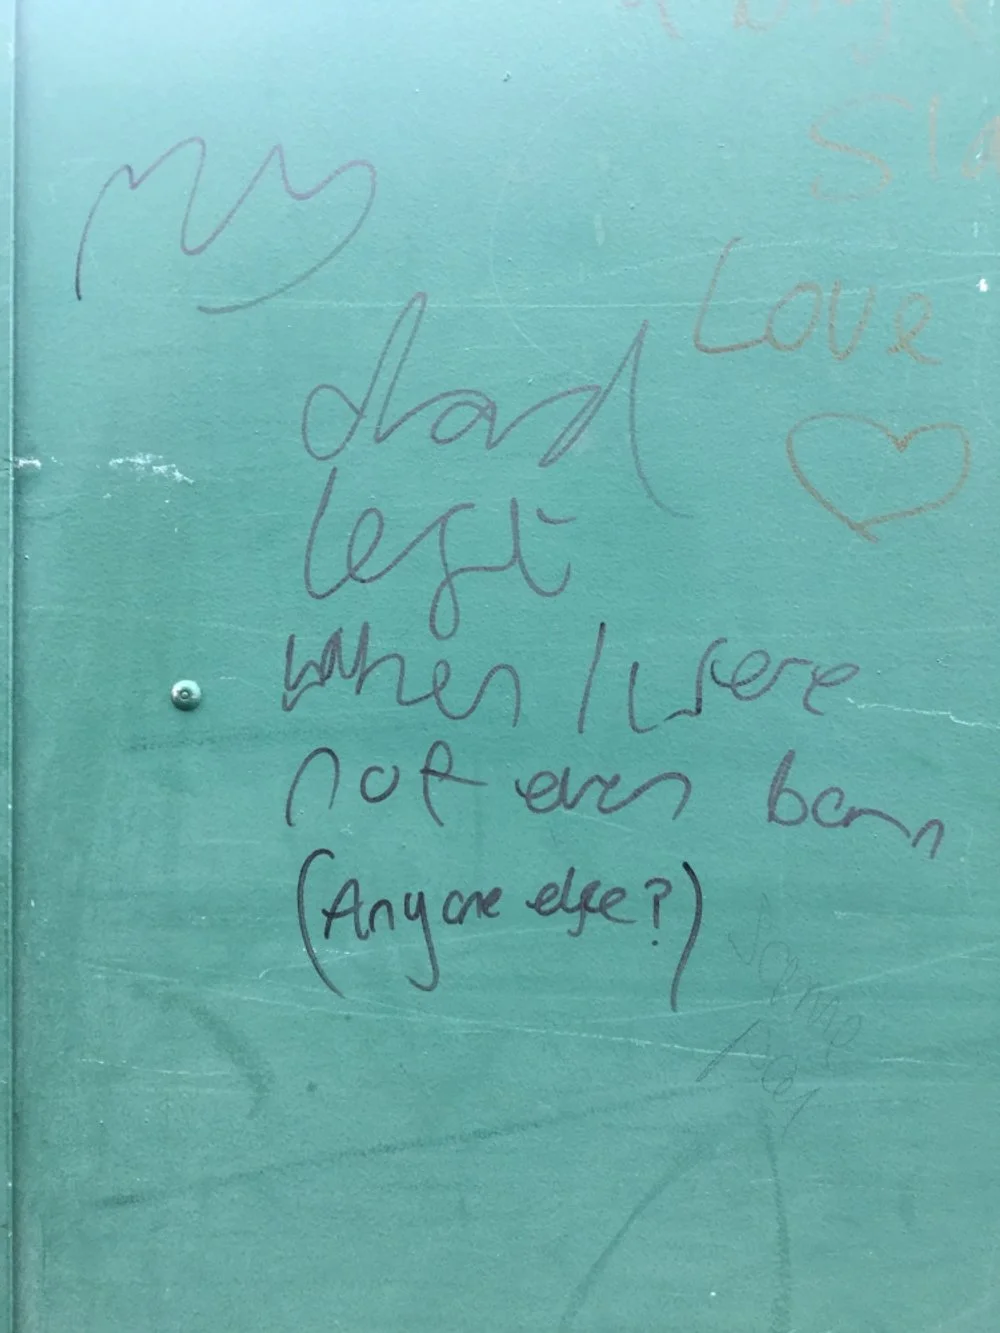 Love
My
dad
left
when I were
not even born
(Anyone else?)